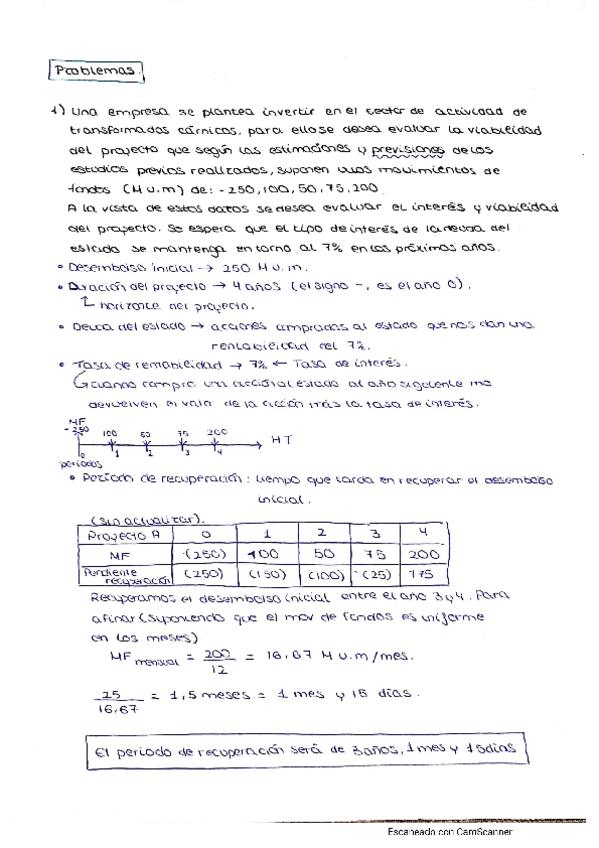 Problemas.
1) Una empresa se plantea invertir en el sector de actividad de
transformados cárnicos, para ello se desea evaluar la viabilidad
del proyecto que según las estimaciones y previsiones de los
estudios previos realizados, suponen unos movimientos de
fondos (M u.m) de: -250, 100, 50, 75, 200.
A la vista de estos datos se desea evaluar el interés y viabilidad
del proyecto. Se espera que el tipo de interés de la deuda del
estado se mantenga en torno al 7% en los próximos años.
• Desembolso inicial → 250 M u.m.
• Duración del proyecto → 4 años (el signo -, es el año 0).
↳ horizonte del proyecto.
• Deuda del estado → acciones compradas al estado que nos dan una
rentabilidad del 7%.
• Tasa de rentabilidad → 7% ← Tasa de interés.
↳ cuando compro una acción al estado al año siguiente me
devuelven el valor de la acción más la tasa de interés.
MF
-250 100 50 75 200
0 1 2 3 4 HT
periodos
• Período de recuperación: tiempo que tarda en recuperar el desembolso
inicial.
(sin actualizar).
Proyecto A 0 1 2 3 4
MF (250) 100 50 75 200
Pendiente recuperación (250) (150) (100) (25) 175
Recuperamos el desembolso inicial entre el año 3 y 4. Para
afinar (suponiendo que el mov de fondos es uniforme
en los meses)
MF mensual = 200/12 = 16.67 M u.m/mes.
25/16.67 = 1,5 meses = 1 mes y 15 días.
El periodo de recuperación será de 3 años, 1 mes y 15 días
Escaneado con CamScanner